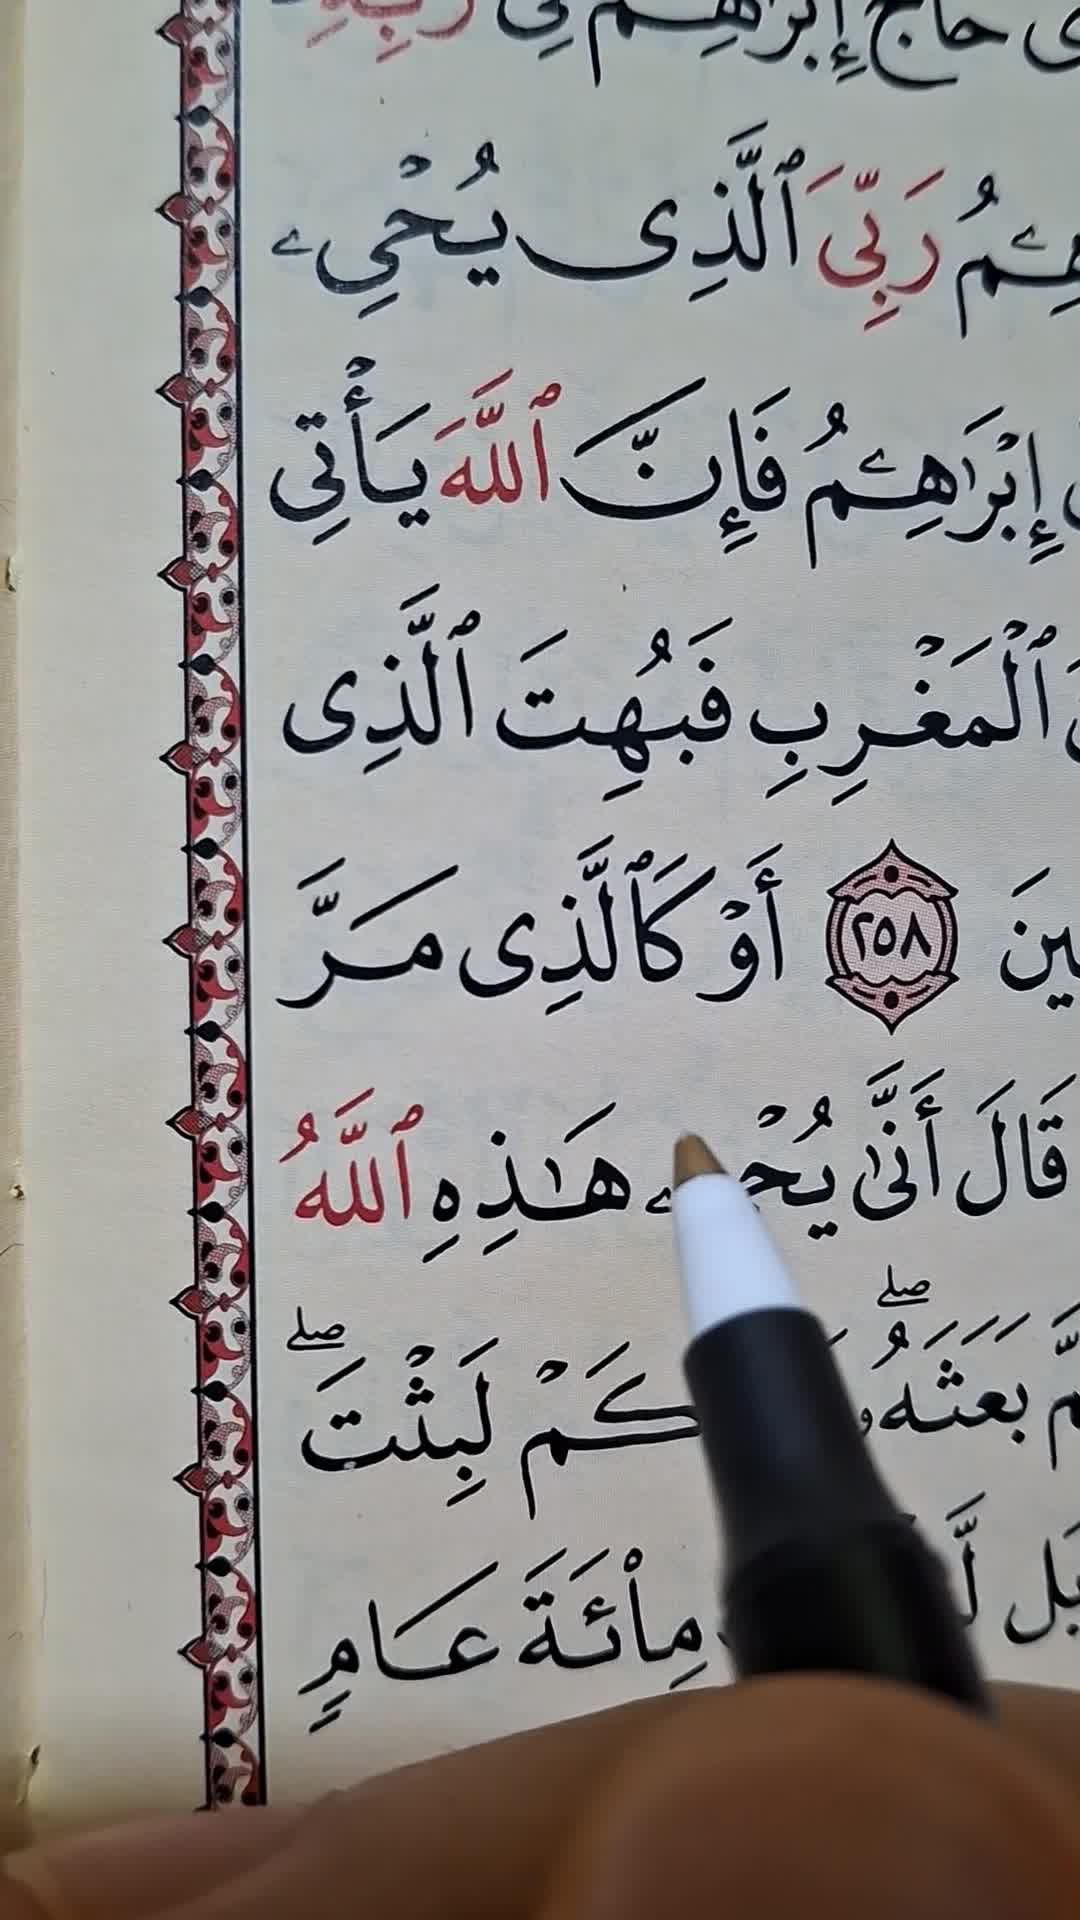 حَآجَّ إِبْرَٰهِـۧمَ فِى رَبِّهِۦٓ
رَبِّىَ ٱلَّذِى يُحْىِۦ
إِبْرَٰهِـۧمُ فَإِنَّ ٱللَّهَ يَأْتِى
ٱلْمَغْرِبِ فَبُهِتَ ٱلَّذِى
٢٥٨ أَوْ كَٱلَّذِى مَرَّ
قَالَ أَنَّىٰ يُحْىِۦ هَـٰذِهِ ٱللَّهُ
بَعَثَهُۥۖ كَمْ لَبِثْتَۖ
بَل مِا۟ئَةَ عَامٍ